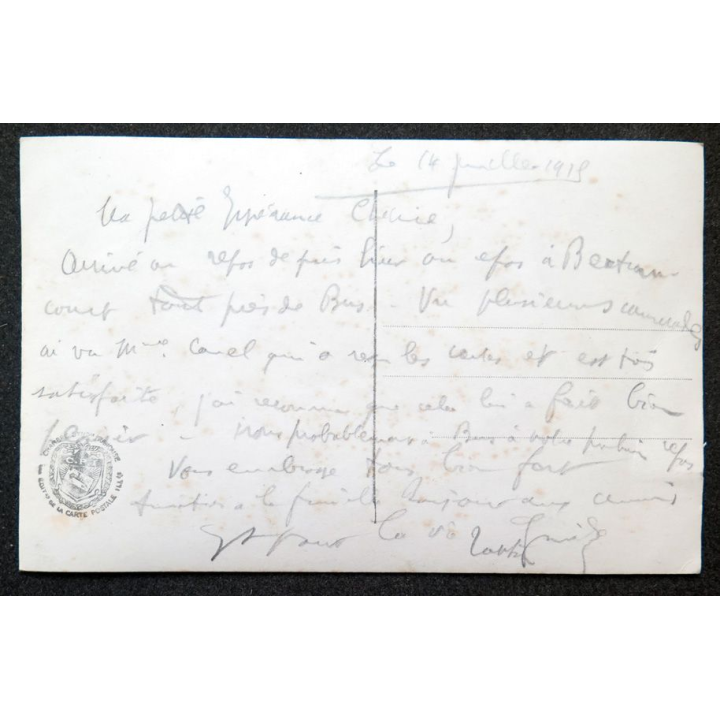 Le 14 juillet 1915
Ma petite Espérance Chérie,
Arrivé au repos depuis hier au repos à Bertrancourt
tout près de Bus. Vu plusieurs camarades
ai vu Mme Carel qui a reçu les cartes et est très
satisfaite, j'ai reconnu que cela lui a fait bien
plaisir - Nous probablement à Bus à notre prochain repos
Vous embrasse tous bien fort
la famille toujours aux amis
DE LA CARTE POSTALE